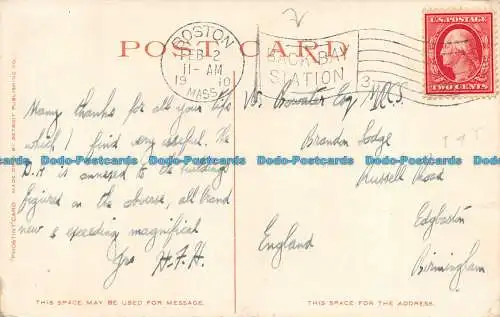 POST CARD
BOSTON
FEB 2
11-AM
1910
MASS.
BACK BAY
STATION
3
U.S. POSTAGE
TWO CENTS
Many thanks for all your tips
which I find very useful. The
is annexed to the buildings
figured on the obverse, all brand
new & exceeding magnificat
Yrs H.F.H.
W. Bowater Esq MRCS.
Brandon Lodge
Russell Road
Edgbaston
Birmingham
England
"PHOSTINT CARD" MADE ONLY BY DETROIT PUBLISHING CO.
THIS SPACE MAY BE USED FOR MESSAGE.
THIS SPACE FOR THE ADDRESS.
Dodo-Postcards Dodo-Postcards Dodo-Postcards Dodo-Postcards
Dodo-Postcards Dodo-Postcards Dodo-Postcards Dodo-Postcards